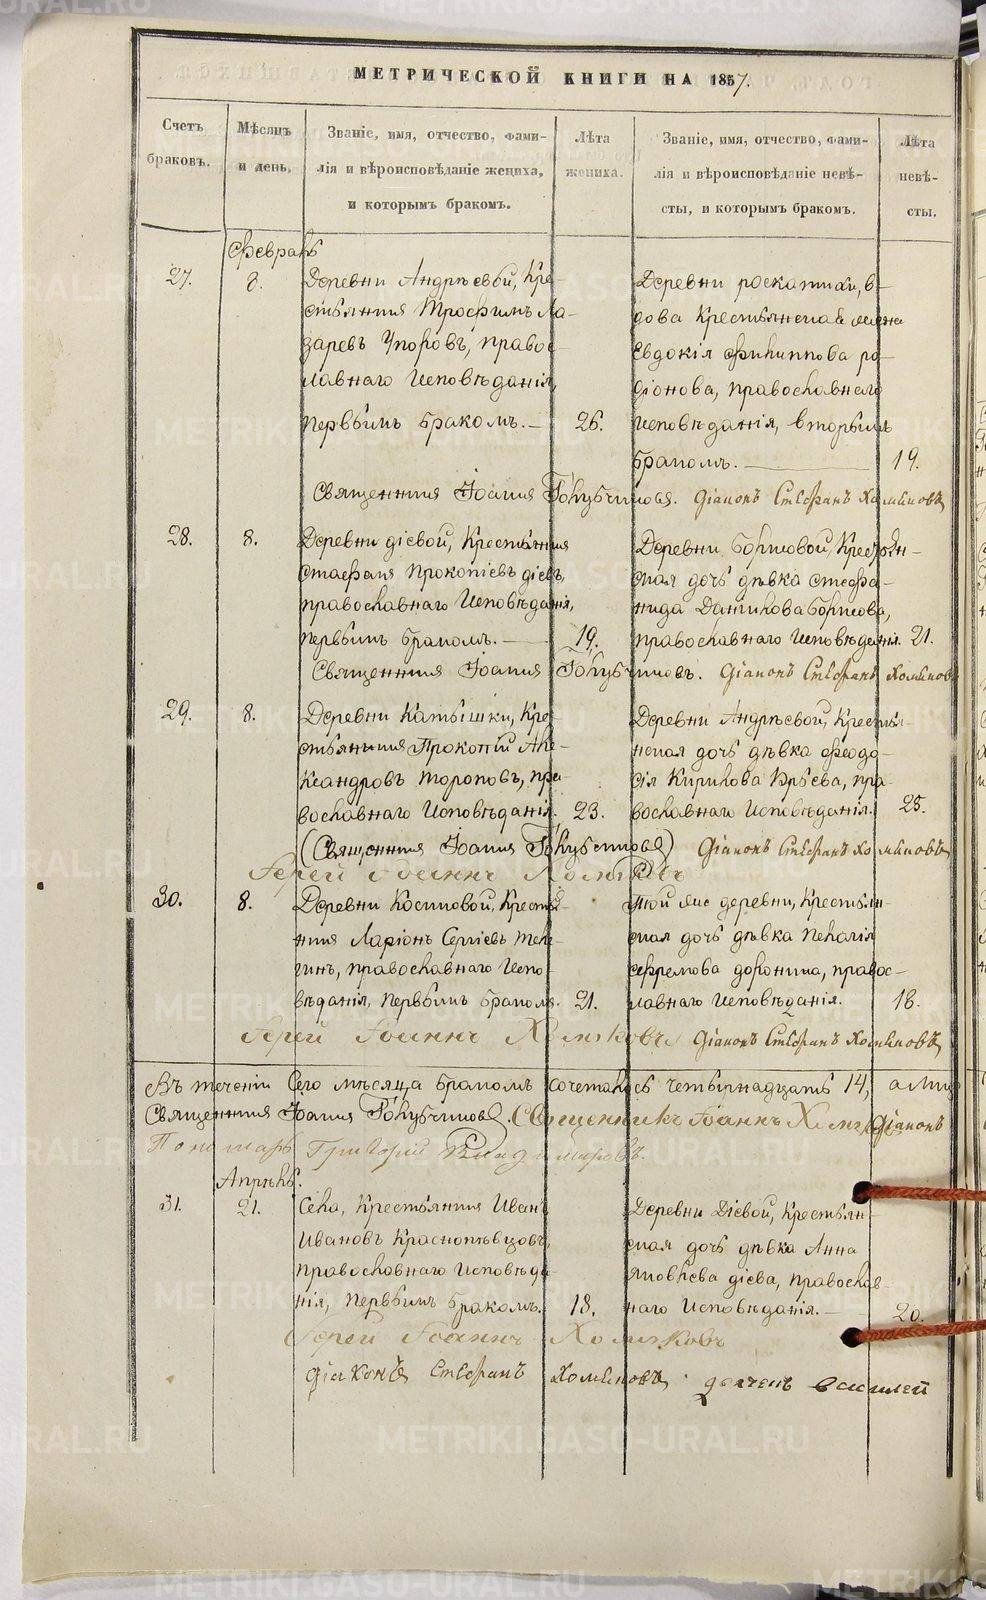 МЕТРИЧЕСКОЙ КНИГИ НА 1857.
Счетъ браковъ.
Мѣсяцъ и день.
Званіе, имя, отчество, фамилія и вѣроисповѣданіе жениха, и которымъ бракомъ.
Лѣта жениха.
Званіе, имя, отчество, фамилія и вѣроисповѣданіе невѣсты, и которымъ бракомъ.
Лѣта невѣсты.
Февраль
27. 8. Деревни Андрѣевой, Кре-
стьянинъ Трофимъ Ла-
заревъ Упоровъ, правос-
лавнаго Исповѣданія,
первымъ бракомъ.— 26.
Деревни роскатихи, в-
дова Крестьянская жена
Евдокія Филиппова ро-
діонова, православнаго
Исповѣданія, вторымъ
бракомъ. — 19.
Священникъ Іоаннъ Голубчиковъ. Діаконъ Стефанъ Хомяковъ
28. 8. Деревни діевой, Крестьянинъ
Стефанъ Прокопіевъ діевъ,
православнаго Исповѣданія,
первымъ бракомъ. — 19.
Деревни Борисовой, Крестьян-
ская дочь дѣвка Стефа-
нида Данилова Борисова,
православнаго Исповѣданія. 21.
Священникъ Іоаннъ Голубчиковъ. Діаконъ Стефанъ Хомяковъ
29. 8. Деревни Катышки, Кре-
стьянинъ Прокопій Але-
ксандровъ Тороповъ, пра-
вославнаго Исповѣданія. 23.
Деревни Андрѣевой, Крестья-
нская дочь дѣвка Феодо-
сія Кирилова Юрьева, пра-
вославнаго Исповѣданія. 25.
(Священникъ Іоаннъ Голубчиковъ) Діаконъ Стефанъ Хомяковъ
Іерей Іоаннъ Хомяковъ
30. 8. Деревни Косиковой, Крестья-
нинъ Ларіонъ Сергіевъ Теле-
гинъ, православнаго Испо-
вѣданія, первымъ бракомъ. 21.
Той же деревни, Крестьян-
ская дочь дѣвка Пелагія
Ефремова доронина, правос-
лавнаго Исповѣданія. 18.
Іерей Іоаннъ Хомяковъ Діаконъ Стефанъ Хомяковъ
Въ теченіи Сего мѣсяца бракомъ сочеталось четырнадцать 14,
Священникъ Іоаннъ Голубчиковъ. Священникъ Іоаннъ Хомяковъ Діаконъ
Пономарь Григорій Владимировъ.
Апрѣль.
31. 21. Села, Крестьянинъ Иванъ
Ивановъ Краснопѣвцовъ,
православнаго Исповѣда-
нія, первымъ бракомъ. 18.
Деревни Діевой, Крестьян-
ская дочь дѣвка Анна
Яковлева діева, православ-
наго Исповѣданія.— 20.
Іерей Іоаннъ Хомяковъ
Діаконъ Стефанъ Хомяковъ дьячекъ василей
METRIKI.GASO-URAL.RU